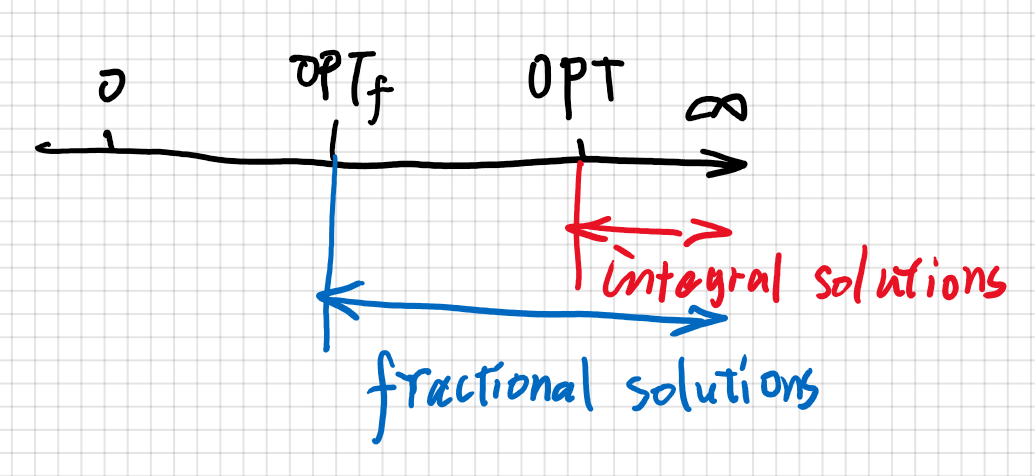 0 OPTf OPT ∞
integral solutions
fractional solutions